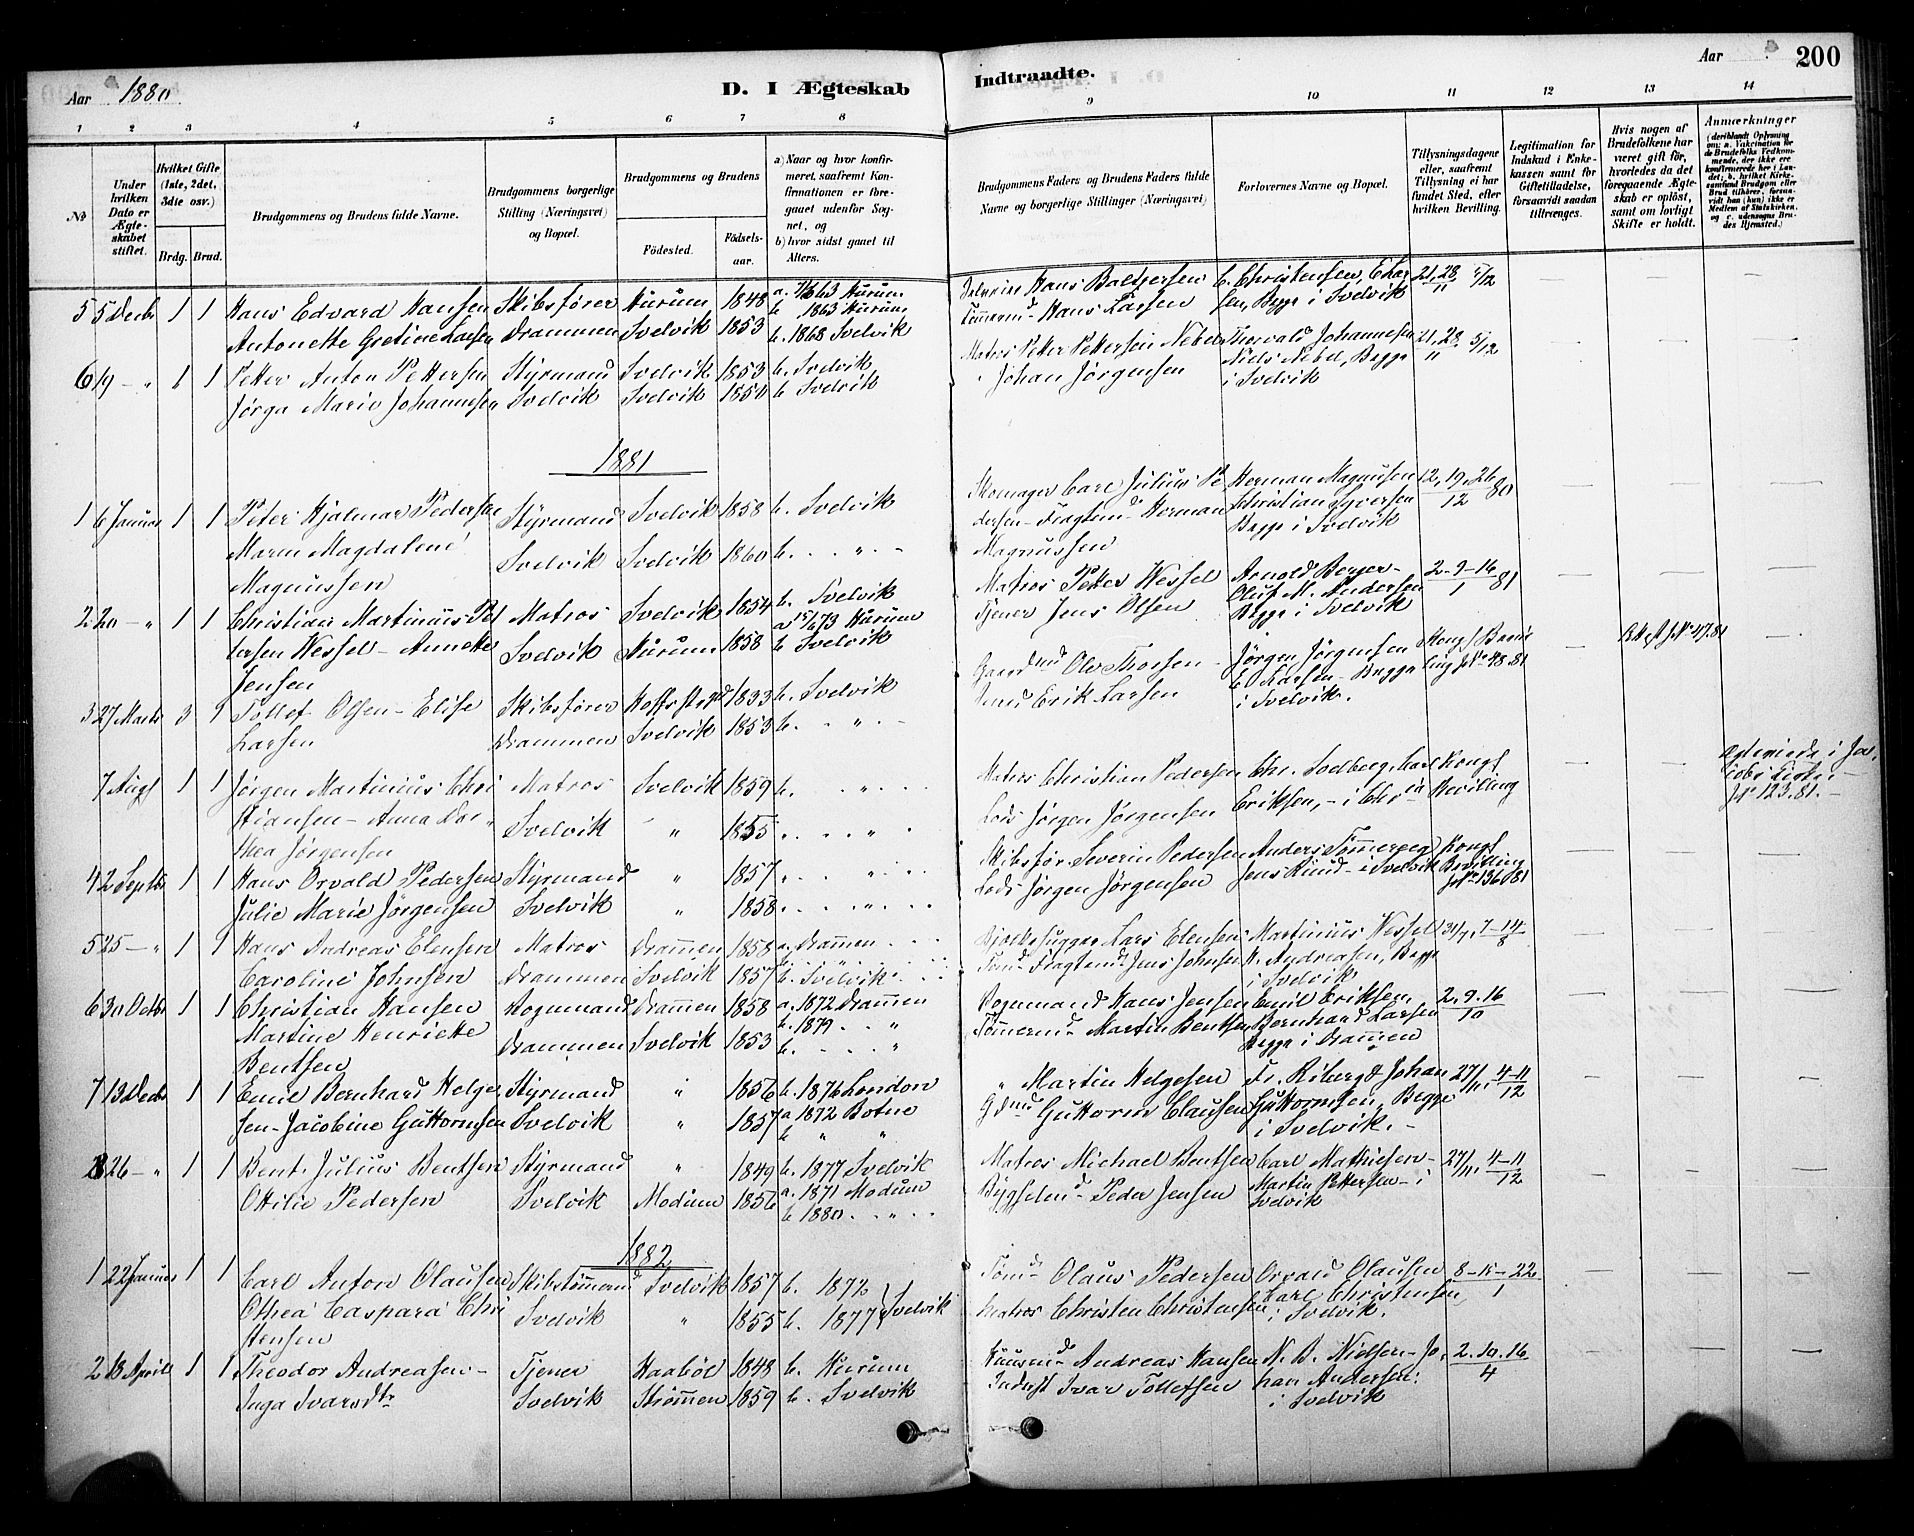 Aar 1880.
D. I Ægteskab
Indtraadte.
Aar
200
1 2 3 4 5 6 7 8 9 10 11 12 13 14
No
Under hvilken Dato er Ægteskabet stiftet.
Hvilket Gifte (1ste, 2det, 3die osv.)
Brdg. Brud.
Brudgommens og Brudens fulde Navne.
Brudgommens borgerlige Stilling (Næringsvei) og Bopæl.
Brudgommens og Brudens
Födested. Födselsaar.
a) Naar og hvor konfirmeret, saafremt Konfirmationen er foregaaet udenfor Sognet, og
b) hvor sidst gaaet til Alters.
Brudgommens Faders og Brudens Faders fulde Navne og borgerlige Stillinger (Næringsvei)
Forlovernes Navne og Bopæl.
Tillysningsdagene eller, saafremt Tillysning ei har fundet Sted, efter hvilken Bevilling.
Legitimation for Indskud i Enkekassen samt for Giftetilladelse, forsaavidt saadan tiltrænges.
Hvis nogen af Brudefolkene har været gift för, hvorledes da det foregaaende Ægteskab er oplöst, samt om lovligt Skifte er holdt.
Anmærkninger
5 5 Decbr 1 1 Hans Edvard Hansen Skibsfører Hurum 1848 1863 Hurum Hans Baltzersen C. Christensen, E. Lar 21, 28/11 5/12
b. 1863 Hurum
Antonette Gretine Larsen Drammen Svelvik 1853 b. 1868 Svelvik Tømmermd Hans Larsen sen, Begge i Svelvik
6 19 — " 1 1 Petter Anton Pettersen Styrmand Svelvik 1853 b. Svelvik Matros Petter Pettersen Nebel Thorvald Johannesen 21, 28/11 5/12
Jørga Marie Johannesen Svelvik Svelvik 1850 b Svelvik Johan Jørgensen Niels Nebel, Begge i Svelvik
1881
1 6 Januar 1 1 Peter Hjalmar Pedersen Styrmand Svelvik 1858 b. Svelvik Skomager Carl Julius Pe Herman Magnusen 12, 19, 26/12 80
Maren Magdalene Svelvik Svelvik 1860 b. " dersen - Fragtemd Herman Christian Syversen
Magnussen Magnussen Begge i Svelvik
2 20 — " 1 1 Christian Martinius Pe Matros Svelvik 1854 b. Svelvik Matros Petter Wessel Arnold Berger - 2-9-16/1 81
dersen Wessel - Annette Svelvik Hurum 1858 a 73 Hurum Tjener Jens Olsen Oluf M. Andersen
Jensen b Svelvik Begge i Svelvik
3 27 Marts 3 1 Tollef Olsen - Elise Skibsfører 1833 b. Svelvik Gaardmd Ole Thorsen Jørgen Jørgensen Kongl Bevil
Larsen Drammen Svelvik 1853 b. " Erik Larsen E. Larsen - Begge i Svelvik. ling No 48.81
7 Augt 1 1 Jørgen Martinius Chri Matros Svelvik 1859 b. " Matros Christian Pedersen Chr. Sodberg, Carl Kongl
stiansen - Anna Dor Svelvik " 1855 " Lods Jørgen Jørgensen Eriksen, - i Chr Bevilling
thea Jørgensen
No 123.81. -
4 2 Septbr 1 1 Hans Orvald Pedersen Styrmand " 1857 " Skibsfør. Severin Pedersen Anders Tømmeraas Kongl
Julie Marie Jørgensen Svelvik " 1858 " Lods Jørgen Jørgensen Jens Ruud - i Svelvik Bevilling No 136 81
5 25 — " 1 1 Hans Andreas Elensen Matros Drammen 1858 a. Drammen Lars Elensen Martinius Wessel 31/7, 7-14/8
Caroline Johnsen Drammen Svelvik 1857 b. Svelvik Fragtemd Jens Johnsen Andreasen, Begge i Svelvik
6 30 Octbr 1 1 Christian Hansen Vognmand Drammen 1858 a. 1872 Drammen Vognmand Hans Jensen Emil Eriksen, 2, 9. 16/10
Martine Henriette b. 1879 " Tømmermd Martin Bentsen Bernhard Larsen
Bentsen Drammen Svelvik 1853 b. " Begge i Drammen
7 13 Decbr 1 1 Emil Bernhard Helge Styrmand " 1856 b. 1876 London " Martin Helgesen Fr. Riberg & Johan 27/11, 4-11/12
sen - Jacobine Guttormsen Svelvik " 1857 a 1872 Botne Gdmd Guttorm Clausen Guttormsen, Begge
b " " i Svelvik. -
8 26 — " 1 1 Bent Julius Bentsen Styrmand " 1849 b. 1877 Svelvik Matros Michael Bentsen Carl Mathiesen - 27/11, 4-11/12
Ottilie Pedersen Svelvik Modum 1856 a. 1871 Modum Peder Jensen Martin Pettersen - i
b 1880 " Svelvik
1882
1 22 Januar 1 1 Carl Anton Olausen Skibstømmermd Svelvik 1857 b. 1872 Svelvik Tømd Olaus Pedersen Orvald Olausen 8-15-22/1
Othea Caspara Chri Svelvik " 1855 b. 1877 Matros Christen Christensen Carl Christensen,
stensen i Svelvik.
2 18 April 1 1 Theodor Andreasen - Tjener Haabøl 1848 b. Hurum Huusmd Andreas Hansen N. B. Nielsen - Jo 2. 10. 16/4
Inga Ivarsdtr Svelvik Strømmen 1859 b. Svelvik Inderst Ivar Tollefsen han Andersen:
i Svelvik